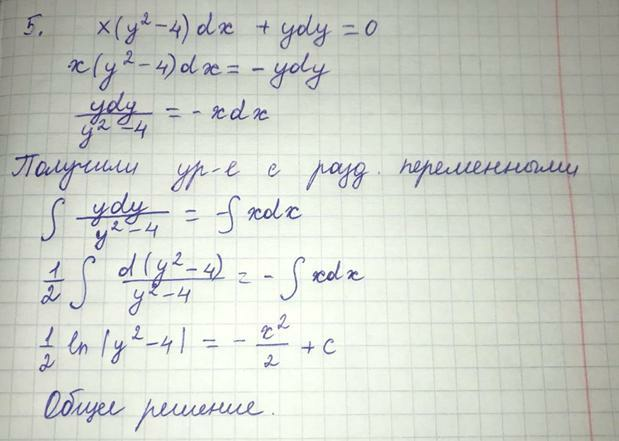 5. x(y²-4)dx + ydy = 0
x(y²-4)dx = - ydy
ydy/(y²-4) = - xdx
Получили ур-е с разд. переменными
∫ ydy/(y²-4) = -∫ xdx
1/2 ∫ d(y²-4)/(y²-4) = - ∫ xdx
1/2 ln|y²-4| = - x²/2 + c
Общее решение.